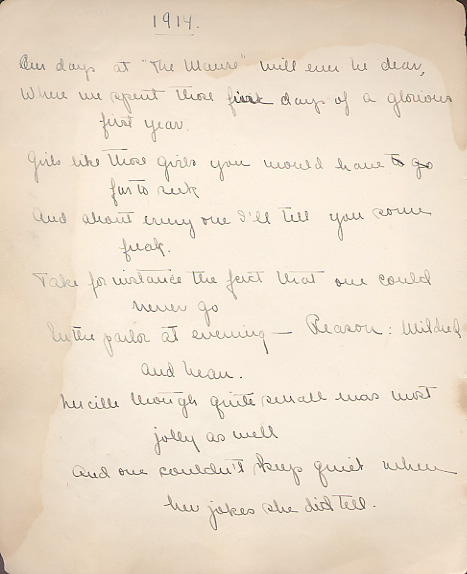 1914.
Our days at "The Manse" will ever be dear,
Where we spent those first days of a glorious
first year.
Girls like those girls you would have to go
far to seek
And about every one I'll tell you some
freak.
Take for instance the fact that one could
never go
In the parlor at evening — Reason: Mildred
and
Lucille though quite small was most
jolly as well
And one couldn't keep quiet when
her jokes she did tell.